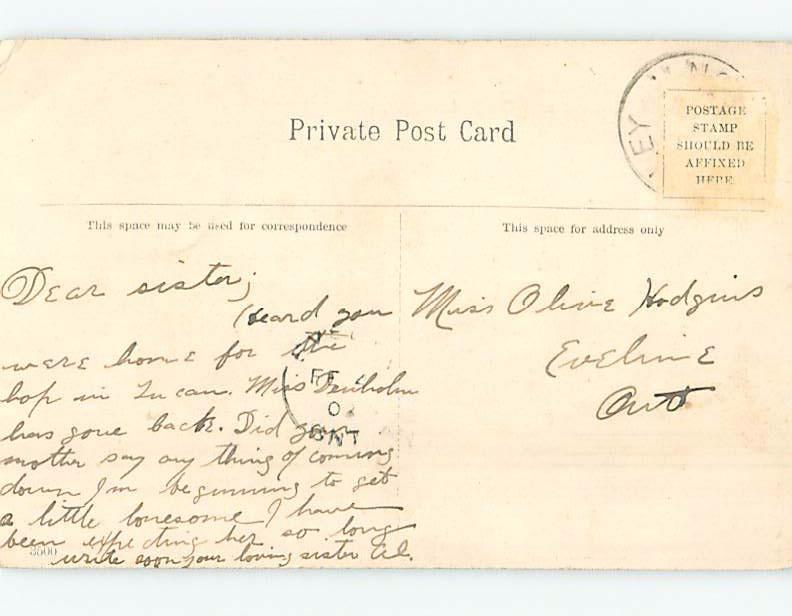 Private Post Card
EY
POSTAGE
STAMP
SHOULD BE
AFFIXED
HERE
This space may be used for correspondence
This space for address only
Dear sister;
Heard you
were home for the
hop in Lucan. Miss Denholm
has gone back. Did your
mother say any thing of coming
down I'm beginning to get
a little lonesome I have
been expecting her so long
write soon your loving sister
Miss Olive Hodgins
Eveline
Ont
FE
O
ONT
3500